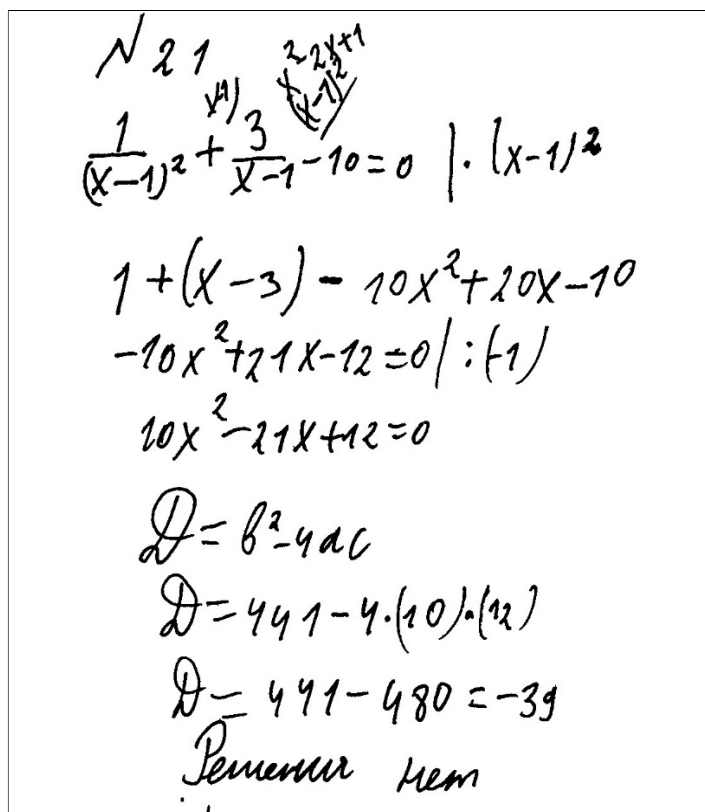 N 21
x-1) x² 2x+1
(x-1)²
1/(x-1)² + 3/x-1 - 10 = 0 | · (x-1)²
1 + (x-3) - 10x² + 20x - 10
-10x² + 21x - 12 = 0 | : (-1)
10x² - 21x + 12 = 0
D = b² - 4ac
D = 441 - 4·(10)·(12)
D = 441 - 480 = -39
Решения нет